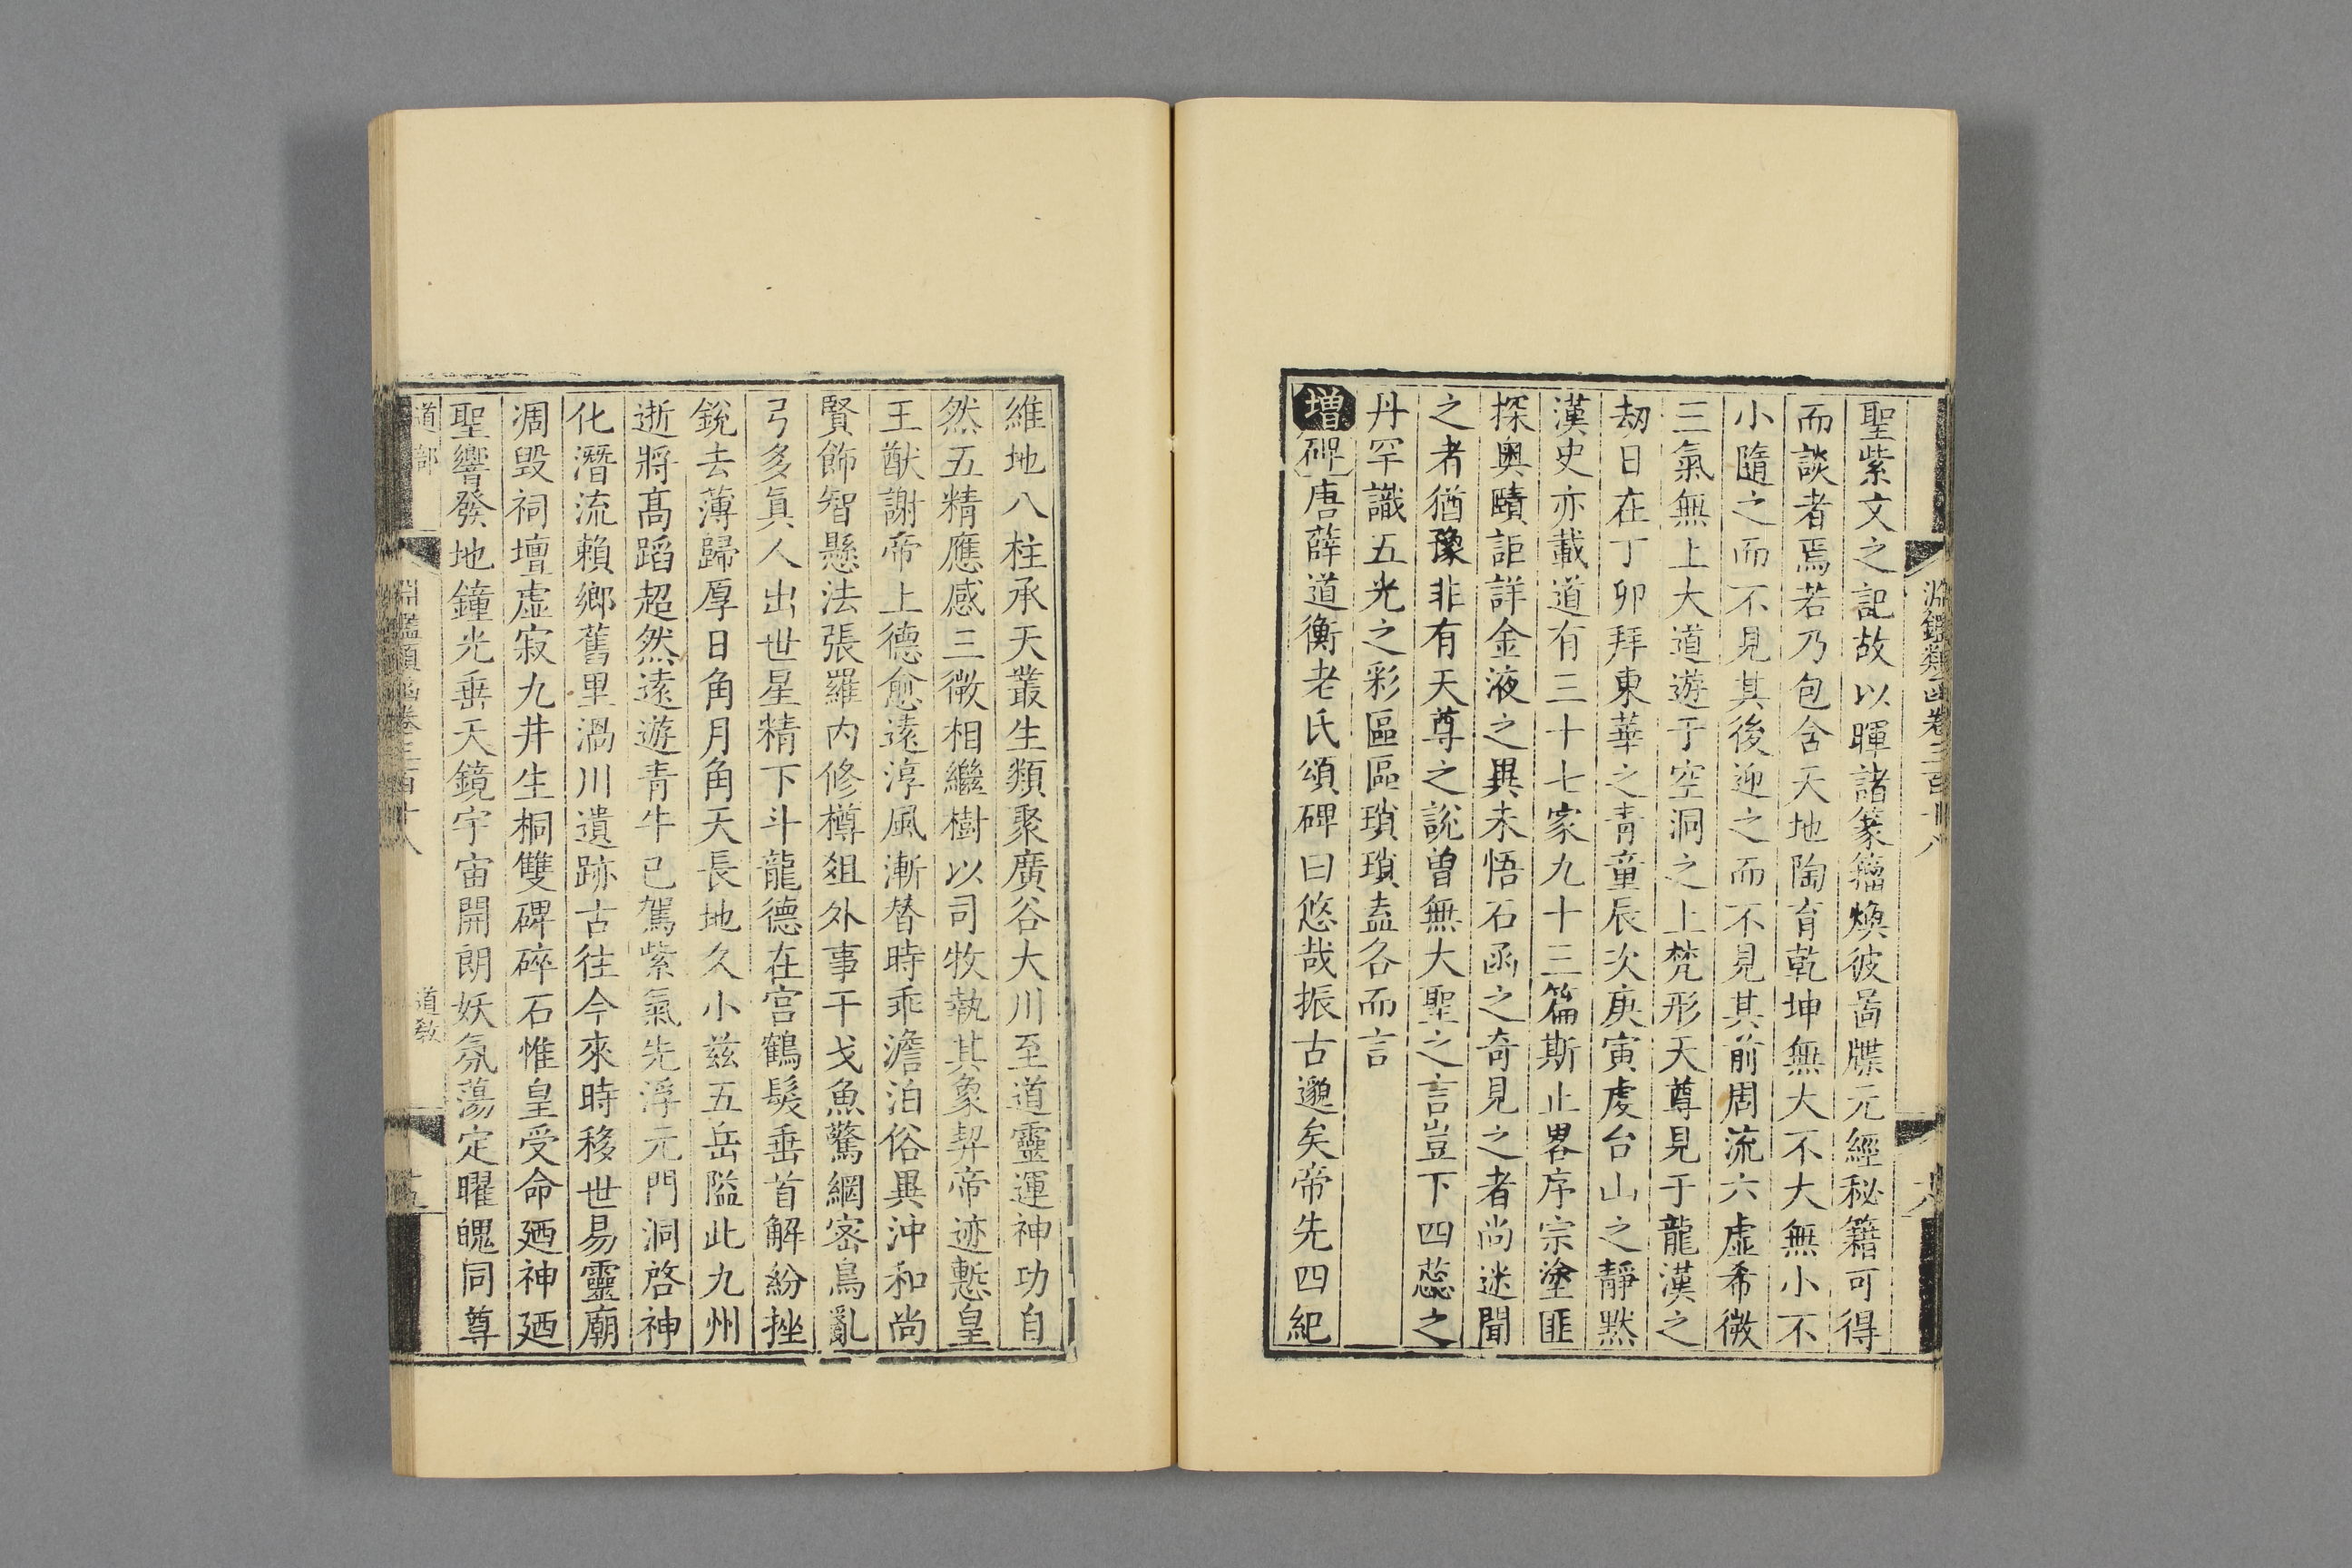 淵鑑類函卷三百十八
聖紫文之記故以暉諸篆籀煥彼啚牒元經秘籍可得
而談者焉若乃包含天地陶育乾坤無大不大無小不
小隨之而不見其後迎之而不見其前周流六虛希微
三氣無上大道遊于空洞之上梵形天尊見于龍漢之
劫日在丁卯拜東華之青童辰次庚寅虔台山之靜默
漢史亦載道有三十七家九十三篇斯止畧序宗塗匪
探奥賾詎詳金液之異未悟石函之奇見之者尚迷聞
之者猶豫非有天尊之說曾無大聖之言豈下四蕊之
丹罕識五光之彩區區瑣瑣盍各而言
增碑唐薛道衡老氏頌碑曰悠哉振古邈矣帝先四紀
維地八柱承天叢生類聚廣谷大川至道靈運神功自
然五精應感三微相繼樹以司牧執其象契帝迹慙皇
王猷謝帝上德愈遠淳風漸替時乖澹泊俗異沖和尚
賢飾智懸法張羅内修樽俎外事干戈魚驚網密鳥亂
弓多眞人出世星精下斗龍德在宫鶴髮垂首解紛挫
銳去薄歸厚日角月角天長地久小兹五岳隘此九州
逝將髙蹈超然遠遊青牛已駕紫氣先浮元門洞啓神
化潛流賴鄉舊里渦川遺跡古往今來時移世易靈廟
凋毁祠壇虛寂九井生桐雙碑碎石惟皇受命廼神廼
聖響發地鐘光垂天鏡宇宙開朗妖氛蕩定曜魄同尊
道部 淵鑑類函卷三百十八 道敎